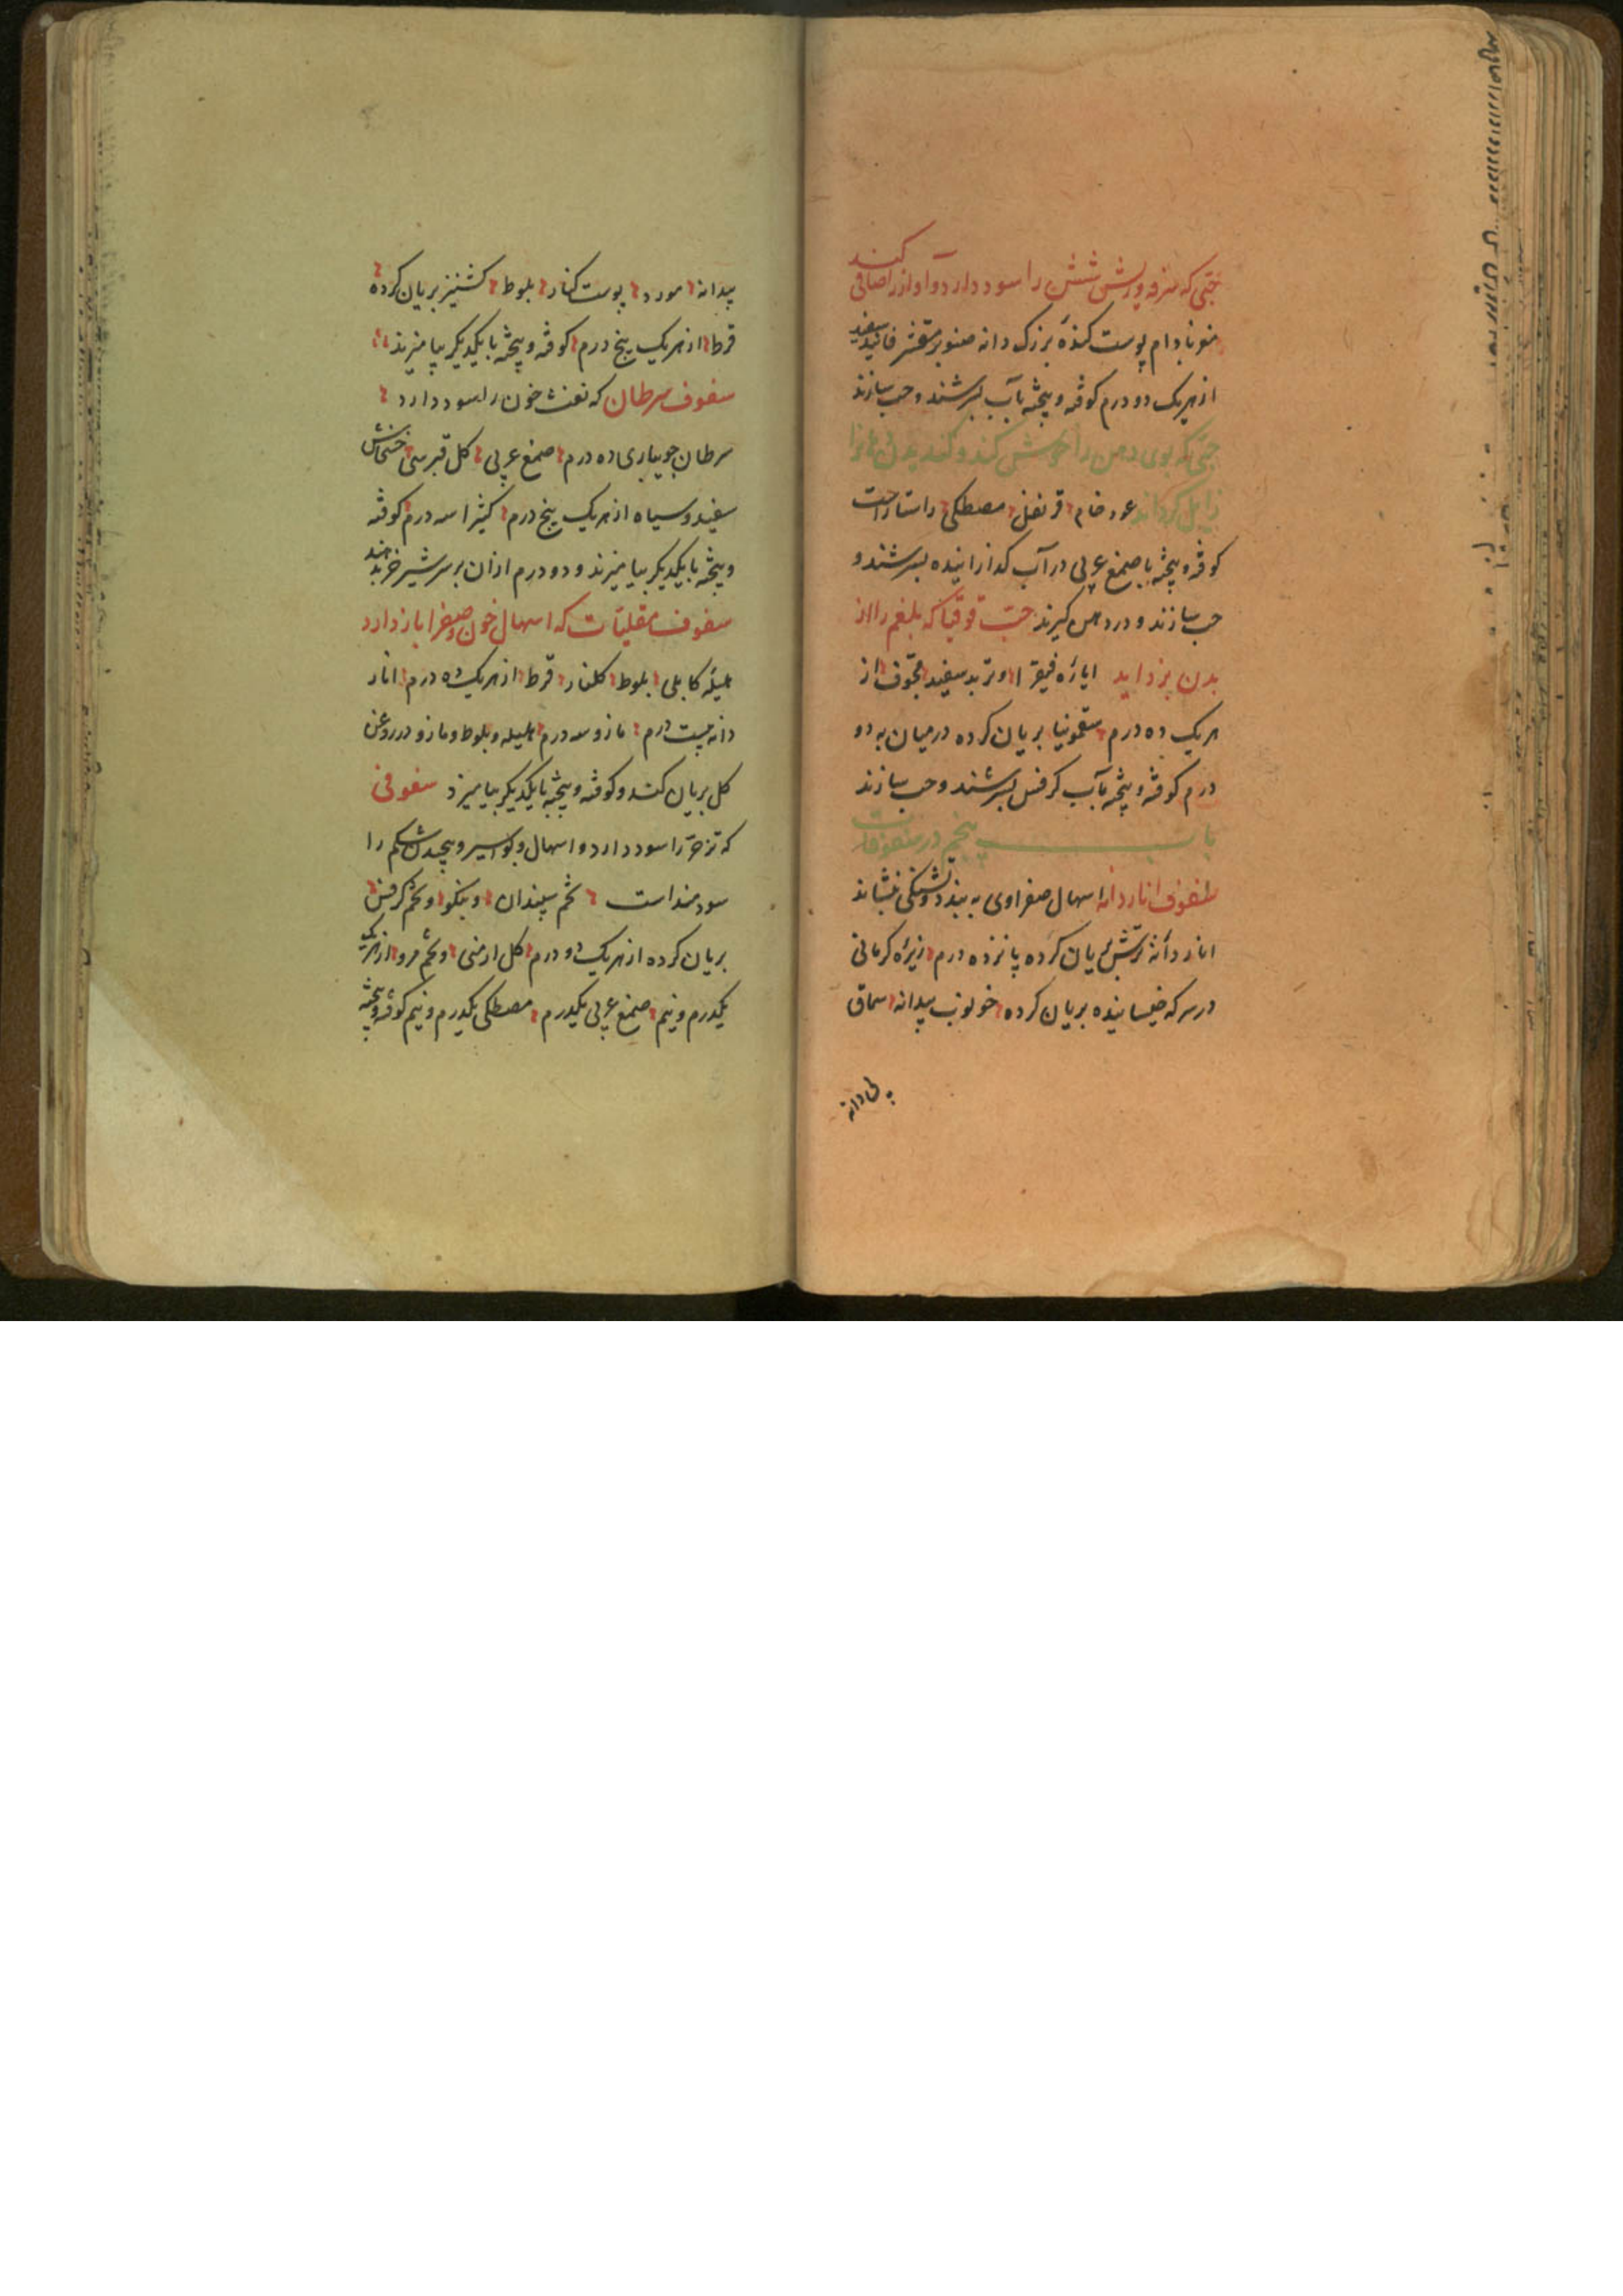 حبی که سرفه و ریش شش را سود دارد و آواز را صافی کند
مغز بادام پوست کنده بزرک دانه صنوبر مقشر فانید سفید
از هریک دو درم کوفته و پیخته بآب بسرشند و حب سازند
حبی که بوی دهن را خوش کند و کند
زایل کرداند عود خام قرنفل مصطکی راستاراست
کوفته و پیخته با صمغ عربی در آب کدازانیده بسرشند و
حب سازند و در دهن کیرند حب قوقیا که بلغم را از
بدن بزداید ایاره فیقرا و تربد سفید مجوف از
هریک ده درم سقمونیا بریان کرده در میان به دو
درم کوفته و پیخته بآب کرفس بسرشند و حب سازند
باب پنجم در سفوفات
سفوف انار دانه اسهال صفراوی به بندد و تشنکی بنشاند
انار دانه ترش بریان کرده پانزده درم زیره کرمانی
در سرکه خیسانیده بریان کرده خرنوب بیدانه سماق
بیدانه
بیدانه مورد پوست کنار بلوط کشنیز بریان کرده
قرط از هریک پنج درم کوفته و پیخته با یکدیکر بیامیزند
سفوف سرطان که نفث خون را سود دارد
سرطان جویباری ده درم صمغ عربی کل قبرسی خشخاش
سفید و سیاه از هریک پنج درم کثیرا سه درم کوفته
و پیخته با یکدیکر بیامیزند و دو درم ازان بر سر شیر خر بدهند
سفوف مقلیاث که اسهال خون و صفرا باز دارد
هلیله کابلی بلوط کلنار قرط از هریک ده درم انار
دانه بیست درم مازو سه درم هلیله و بلوط و مازو در روغن
کل بریان کنند و کوفته و پیخته با یکدیکر بیامیزد سفوفی
که تزحر را سود دارد و اسهال و بواسیر و پیچیدن شکم را
سودمند است تخم سپندان و بنکو و تخم کرفس
بریان کرده از هریک دو درم کل ارمنی و تخم مرو از هریک
یکدرم و نیم صمغ عربی یکدرم مصطکی یکدرم و نیم کوفته و پیخته